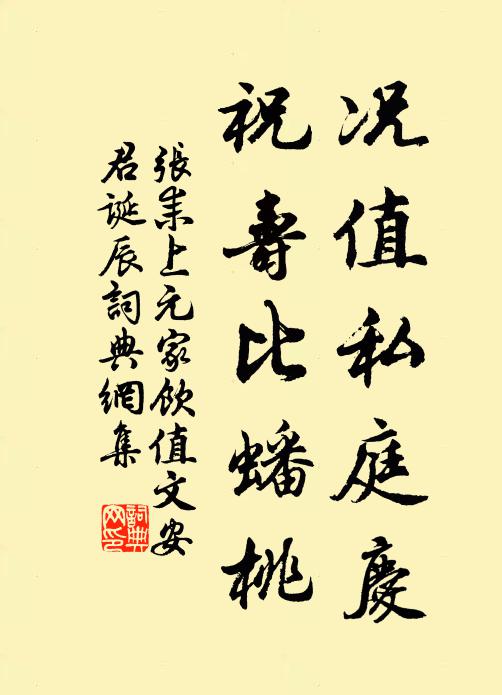 况值私庭慶
祝壽比蟠桃
張耒上元家飲值文安
君誕辰詞典網集
詞典
网印